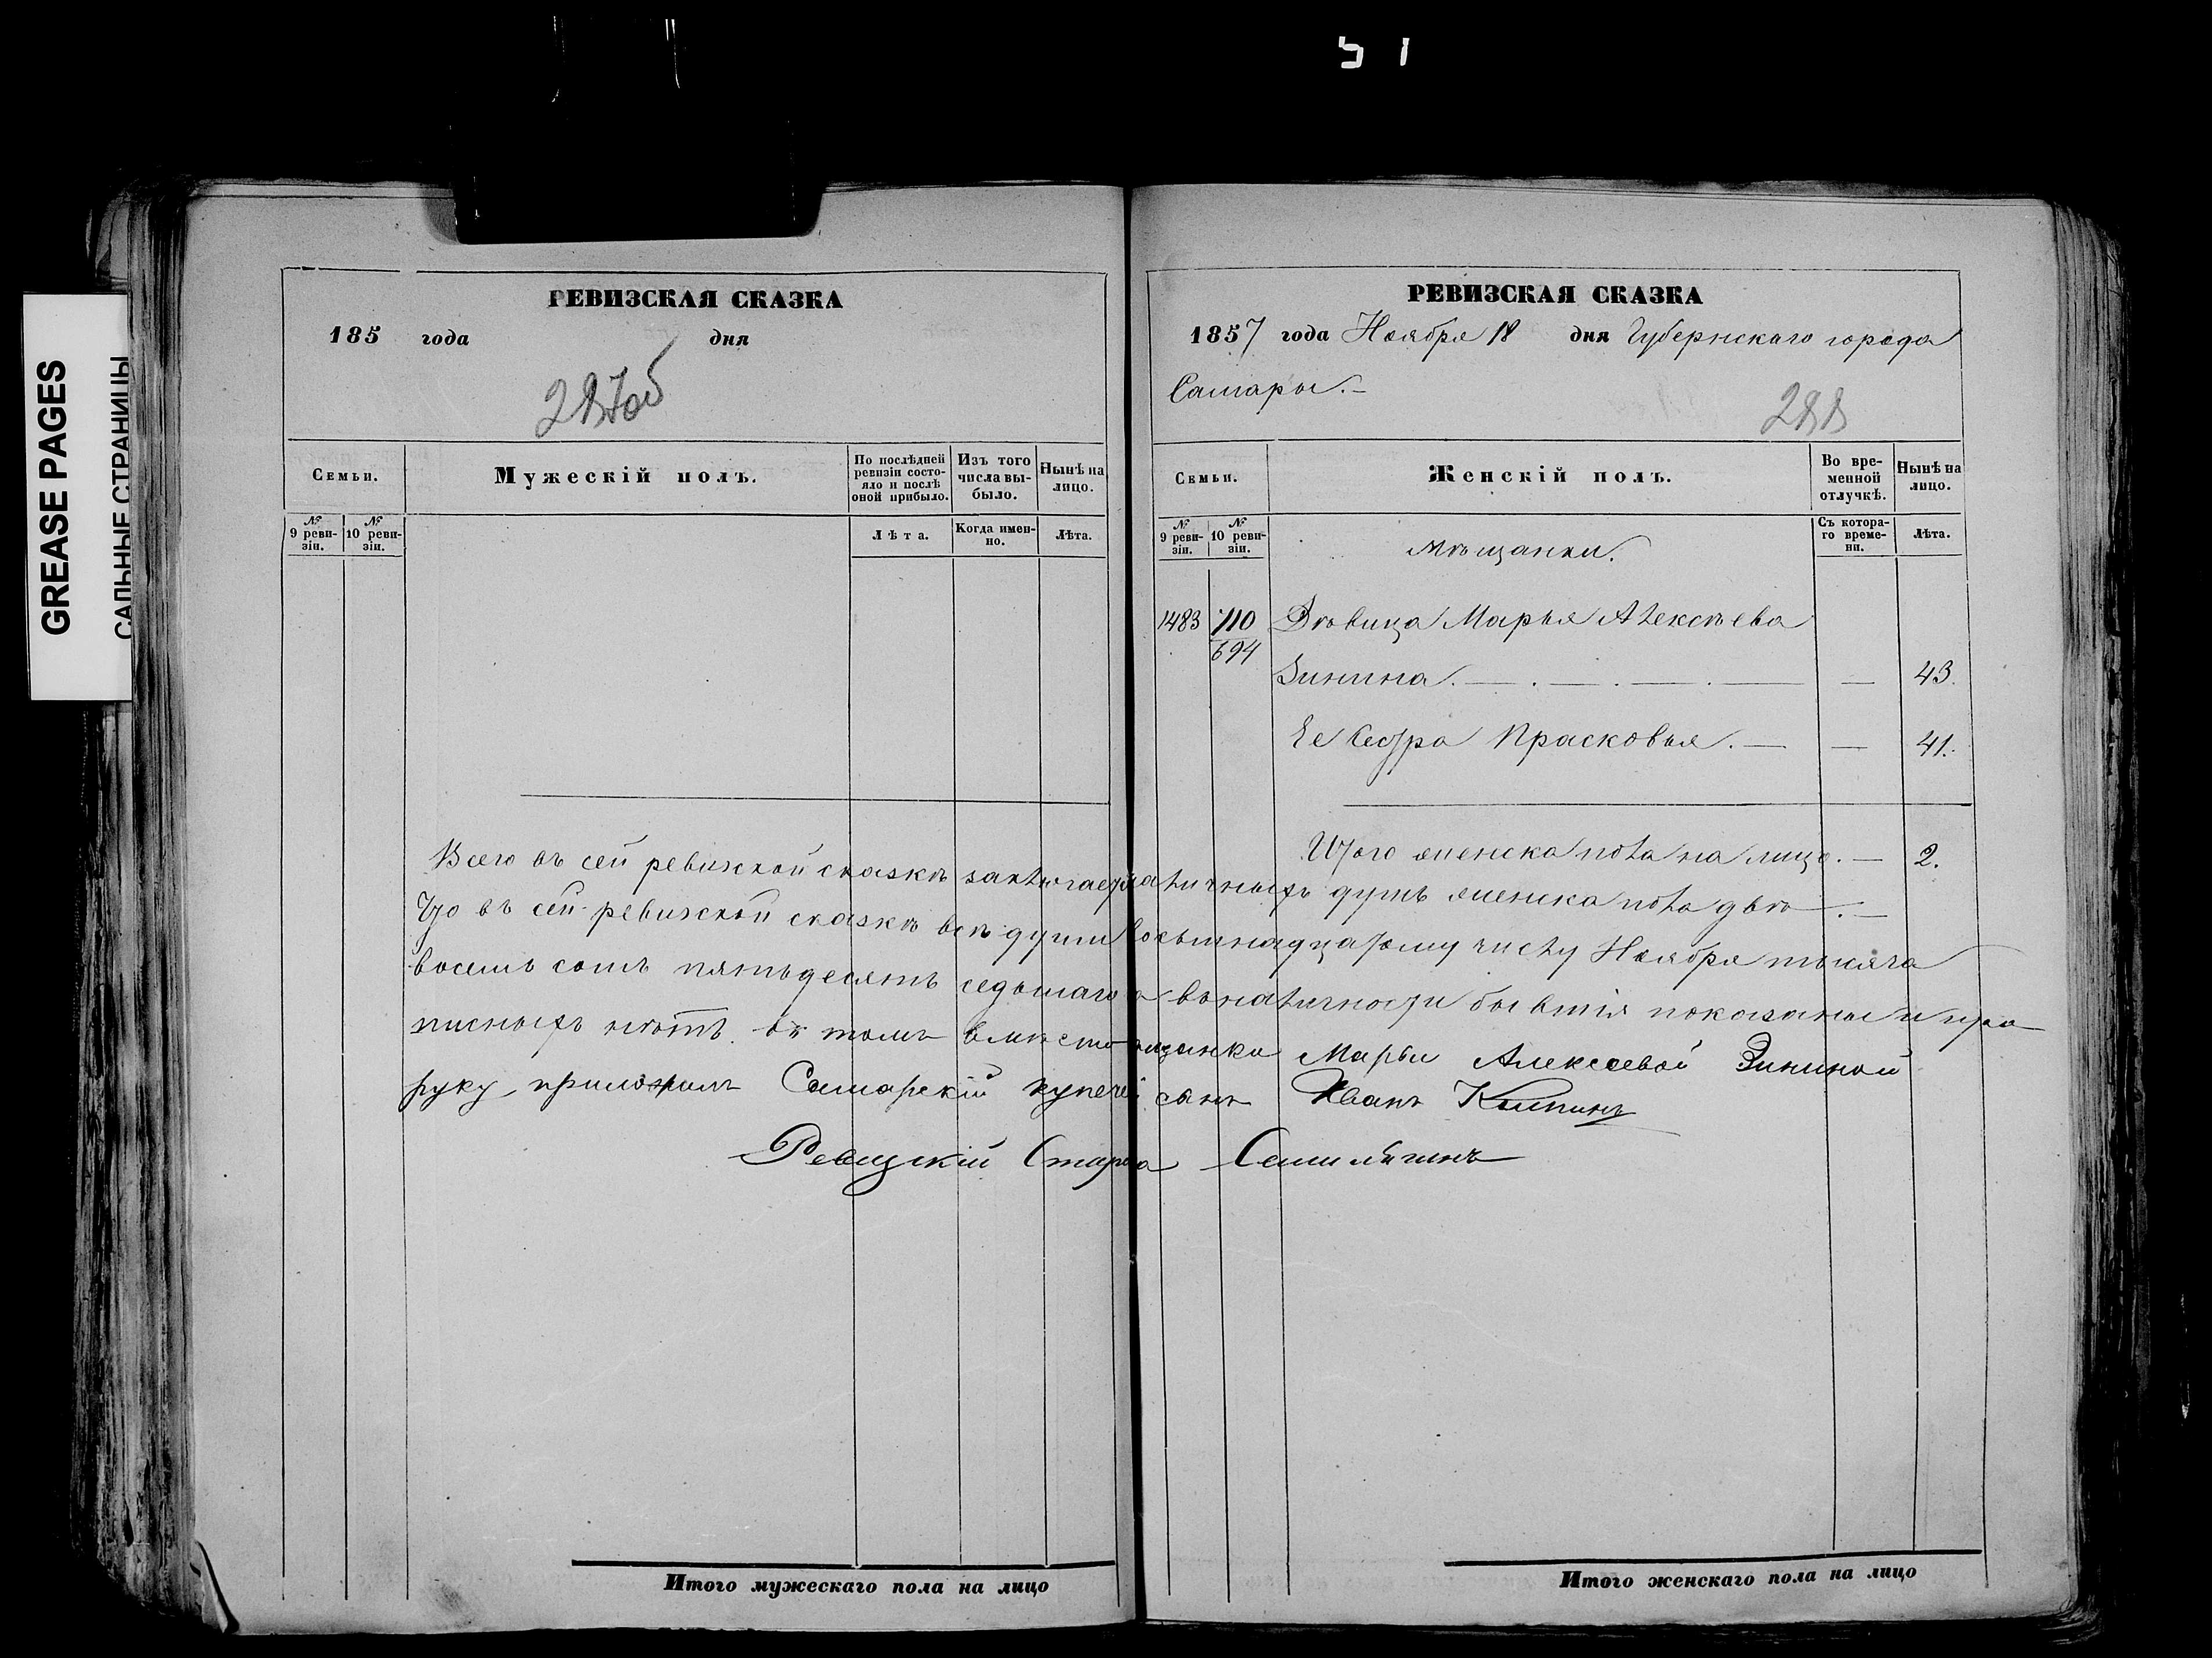 GREASE PAGES
САЛЬНЫЕ СТРАНИЦЫ
РЕВИЗСКАЯ СКАЗКА
185 года дня
287об
Семьи.
Мужескій полъ.
По послѣдней ревизіи состояло и послѣ оной прибыло.
Изъ того числа выбыло.
Нынѣ на лицо.
№ 9 ревизіи.
№ 10 ревизіи.
Лѣта.
Когда именно.
Лѣта.
РЕВИЗСКАЯ СКАЗКА
1857 года Ноября 18 дня Губернскаго города
Самары.-
288
Семьи.
Женскій полъ.
Во временной отлучкѣ.
Нынѣ на лицо.
№ 9 ревизіи.
№ 10 ревизіи.
Мѣщанки.
Съ котораго времени.
Лѣта.
1483 710 Дѣвица Марья Алексѣева
694
Зинина. — — 43.
Ее Сестра Прасковья. — — 41.
Итого женска пола на лицо. — 2.
Всего въ сей ревизской сказкѣ заключается наличныхъ душъ женска пола двѣ —.—
Что въ сей ревизской сказкѣ всѣ души восьмнадцатому числу Ноября тысяча
восемь сотъ пятьдесятъ седьмаго вьналичности бывшія показаны и про
писныхъ нѣтъ. въ томъ вмѣсто мещанки Марьи Алексеевой Зининой
руку приложилъ Самарскій купечей сынъ Иванъ
Ревизскій Староста
Итого мужескаго пола на лицо
Итого женскаго пола на лицо